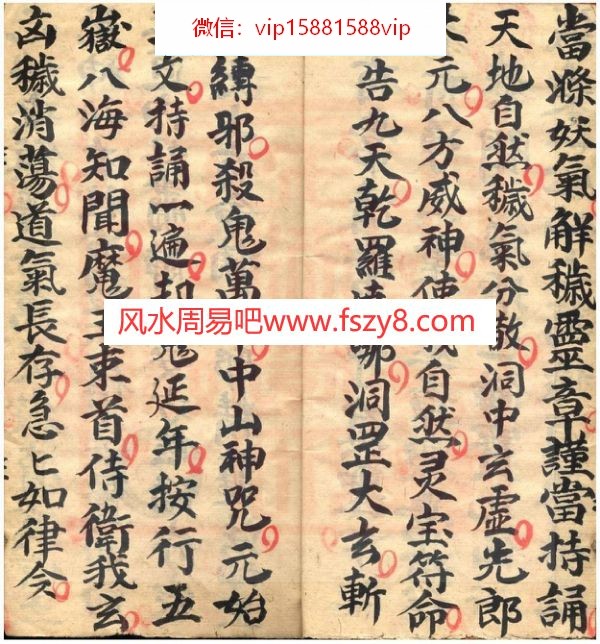 微信：vip15881588vip
當滌妖氣解穢靈章謹當持誦
天地自然穢氣分散洞中玄虛先郎
元八方威神使我自然灵宝符命
告九天乾羅那洞罡大玄斬
縛邪殺鬼萬中山神咒元始
文持誦一遍却鬼延年按行五
嶽八海知聞魔王束首侍衛我玄
凶穢消蕩道氣長存急匕如律令
风水周易吧www.fszy8.com